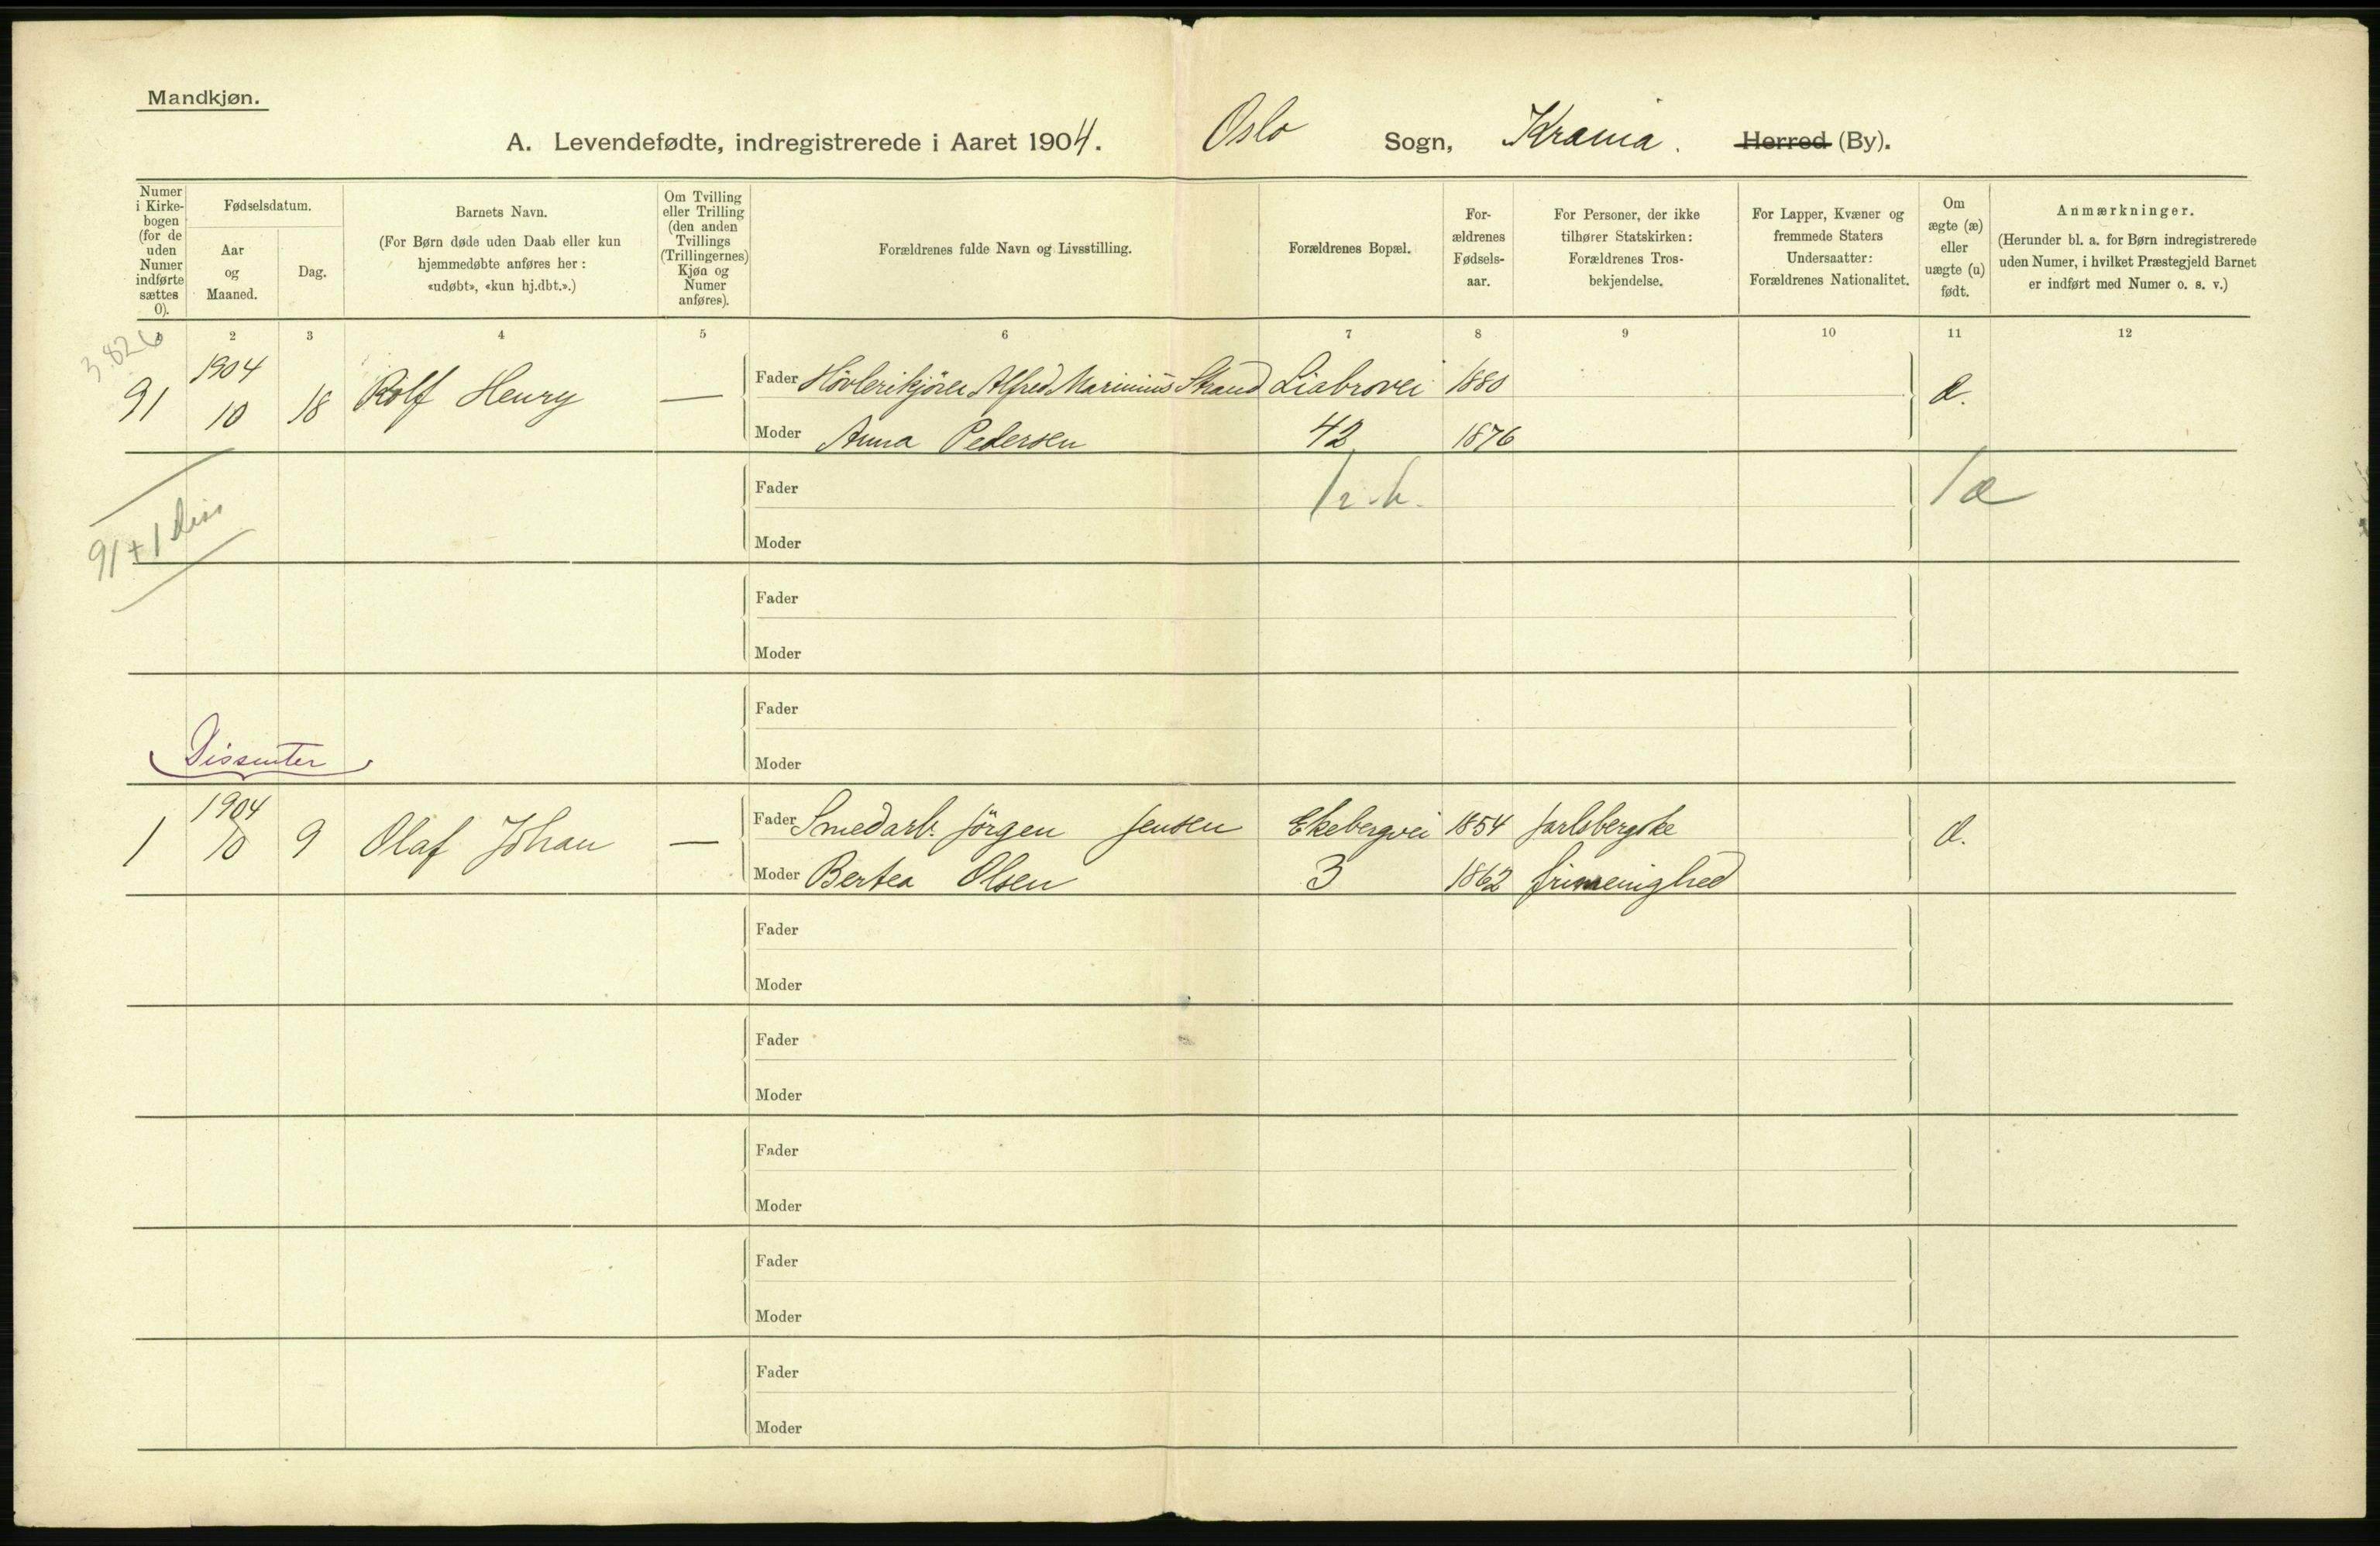 Mandkjøn.
A. Levendefødte, indregistrerede i Aaret 1904. Oslo Sogn, Krania. Herred (By).
Numer i Kirkebogen (for de uden Numer indførte sættes 0).
Fødselsdatum.
Aar og Maaned.
Dag.
Barnets Navn.
(For Børn døde uden Daab eller kun hjemmedøbte anføres her: «udøbt», «kun hj.dbt.».)
Om Tvilling eller Trilling (den anden Tvillings (Trillingernes) Kjøn og Numer anføres).
Forældrenes fulde Navn og Livsstilling.
Forældrenes Bopæl.
Forældrenes Fødselsaar.
For Personer, der ikke tilhører Statskirken: Forældrenes Trosbekjendelse.
For Lapper, Kvæner og fremmede Staters Undersaatter: Forældrenes Nationalitet.
Om ægte (æ) eller uægte (u) født.
Anmærkninger.
(Herunder bl. a. for Børn indregistrerede uden Numer, i hvilket Præstegjeld Barnet er indført med Numer o. s. v.)
1 2 3 4 5 6 7 8 9 10 11 12
3826
91 1904 10 18 Rolf Henry — Fader Alfred Marinius Strand Liabrovei 1880 æ.
Moder Anna Pedersen 42 1876
91 + 1 diss
Fader 1 æ
Moder
Fader
Moder
Fader
Moder
Dissenter
1 1904 10 9 Olaf Johan — Fader Smedarb. Jörgen Jensen Ekebergvei 1854 Jarlsbergske æ.
Moder Bertea Olsen 3 1862 frimenighed
Fader
Moder
Fader
Moder
Fader
Moder
Fader
Moder
Fader
Moder